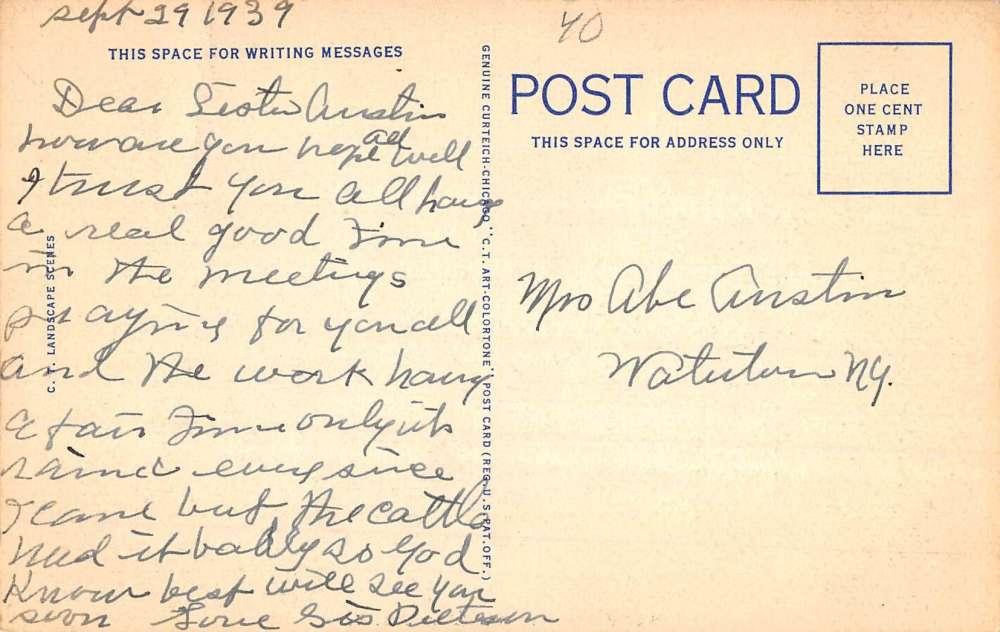 sept 29 1939
40
THIS SPACE FOR WRITING MESSAGES
Dear Sister Austin
how are you hope all well
I trust you all haveing
a real good time
in the meetings
praying for you all
and the work haveing
a fair time only its
raind every since
I came but the cattle
need it badly so God
Know best will see you
soon Love Sis
C. T. LANDSCAPE SCENES
GENUINE CURTEICH-CHICAGO "C.T. ART-COLORTONE" POST CARD (REG. U.S. PAT. OFF.)
POST CARD
THIS SPACE FOR ADDRESS ONLY
PLACE
ONE CENT
STAMP
HERE
Mrs Abe Austin
Watertown NY.